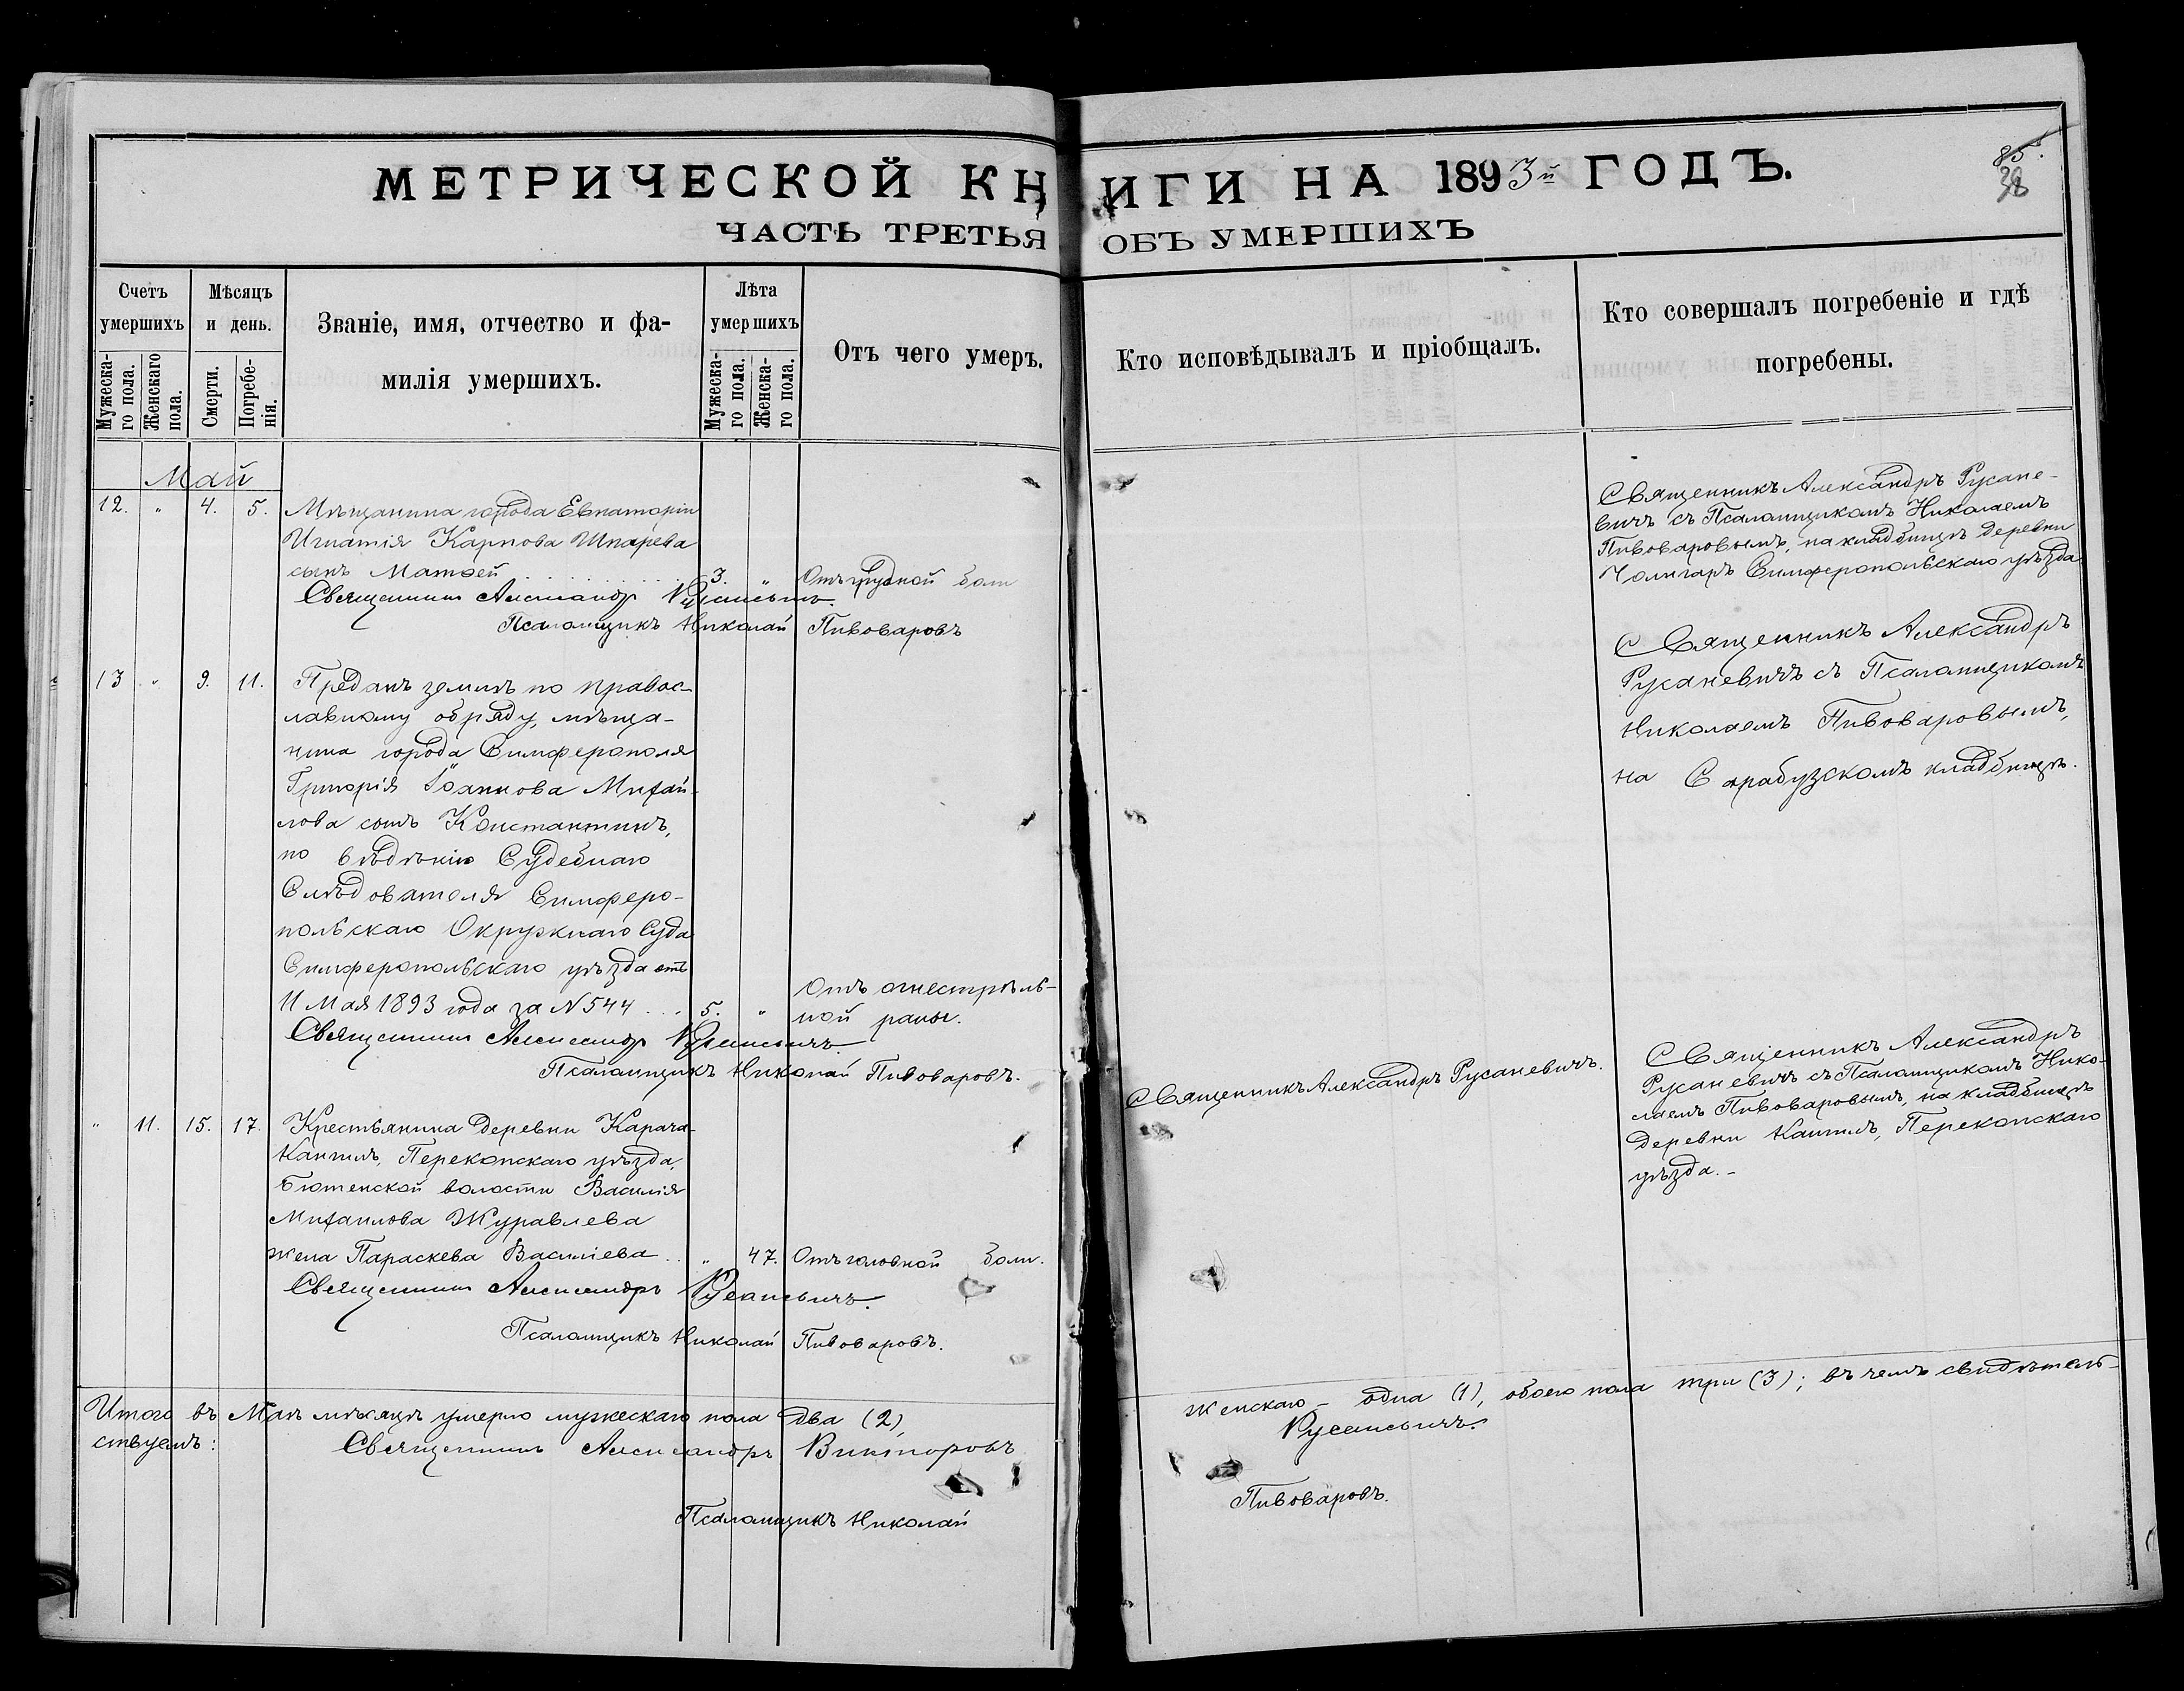 МЕТРИЧЕСКОЙ КНИГИ НА 1893й ГОДЪ.
ЧАСТЬ ТРЕТЬЯ ОБЪ УМЕРШИХЪ
85.
38
Счетъ умершихъ
Мужескаго пола.
Женскаго пола.
Мѣсяцъ и день.
Смерти.
Погребенія.
Званіе, имя, отчество и фамилія умершихъ.
Лѣта умершихъ
Мужескаго пола.
Женскаго пола.
Отъ чего умеръ.
Кто исповѣдывалъ и пріобщалъ.
Кто совершалъ погребеніе и гдѣ погребены.
Май
12. " 4. 5. Мѣщанина города Евпаторіи
Игнатія Карпова Шпарева
сынъ Матѳей 3. " Отъ грудной боли
Священникъ Александръ Русаневичъ.
Псаломщикъ Николай Пивоваровъ
Священникъ Александръ Русане-
вичъ съ Псаломщикомъ Николаемъ
Пивоваровымъ, на кладбищѣ деревни
Чонгаръ Симферопольскаго уѣзда
13 " 9. 11. Преданъ землѣ по правос-
лавному обряду, мѣща-
нина города Симферополя
Григорія Іоаннова Михай-
лова сынъ Константинъ,
по вѣдѣнію Судебнаго
Слѣдователя Симферо-
польскаго Окружнаго Суда
Симферопольскаго уѣзда отъ
11 Мая 1893 года за N 544 ... 5. " Отъ огнестрѣль-
ной раны.
Священникъ Александръ Русаневичъ.
Псаломщикъ Николай Пивоваровъ.
Священникъ Александръ
Русаневичъ съ Псаломщикомъ
Николаемъ Пивоваровымъ,
на Сарабузскомъ кладбищѣ.
" 11. 15. 17. Крестьянина деревни Карача-
Кангилъ, Перекопскаго уѣзда,
Бютенской волости Василія
Михаилова Журавлева
жена Параскева Василіева .. " 47. Отъ головной боли.
Священникъ Александръ Русаневичъ.
Псаломщикъ Николай Пивоваровъ.
Священникъ Александръ Русаневичъ.
Священникъ Александръ
Русаневичъ съ Псаломщикомъ Нико-
лаемъ Пивоваровымъ, на кладбищѣ
деревни Кангилъ, Перекопскаго
уѣзда.-
Итого въ Маѣ мѣсяцѣ умерло мужескаго пола два (2), женскаго - одна (1), обоего пола три (3); въ чемъ свидѣтель-
ствуемъ: Священникъ Александръ Викторовъ Русаневичъ.
Псаломщикъ Николай Пивоваровъ.